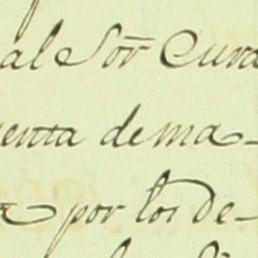 al Sōr Cura
uenta de ma-
a por los de-